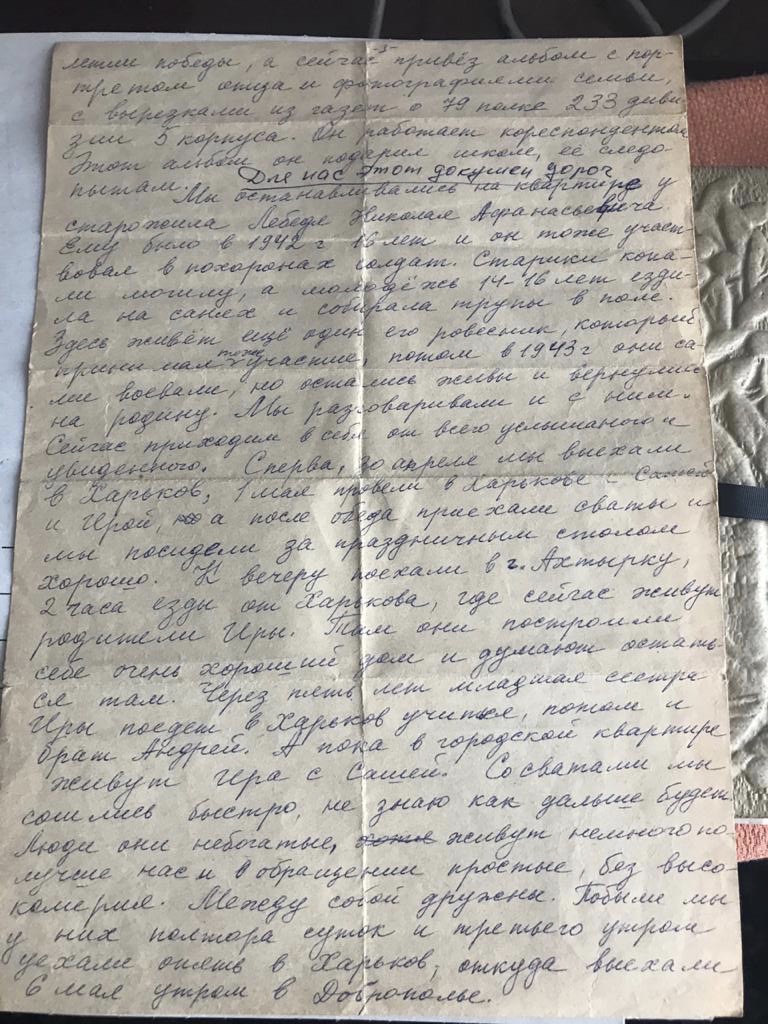 -5-
летии победы, а сейчас привёз альбом с пор-
третом отца и фотографиями семьи,
с вырезками из газет о 79 полке 233 диви
зии 5 корпуса. Он работает кореспондентом
Этот альбом он подарил школе, её следо-
пытам. Для нас этот докумен дорог
Мы останавливались на квартире у
старожила Лебедя Николая Афанасьевича.
Ему было в 1942 г 16 лет и он тоже участ-
вовал в похоронах солдат. Старики копа-
ли могилу, а молодёжь 14-16 лет езди-
ла на санях и собирала трупы в поле.
Здесь живёт ещё один его ровесник, который
принимал тоже участие, потом в 1943 г они са-
ми воевали, но остались живы и вернулись
на родину. Мы разговаривали и с ним.
Сейчас приходим в себя от всего услышаного и
увиденного. Сперва, 30 апреля мы выехали
в Харьков, 1 мая провели в Харькове с Сашей
и Ирой, а после обеда приехали сваты и
мы посидели за праздничным столом
хорошо. К вечеру поехали в г. Ахтырку,
2 часа езды от Харькова, где сейчас живут
родители Иры. Там они построили
себе очень хороший дом и думают остать-
ся там. Через пять лет младшая сестра
Иры поедет в Харьков учиться, потом и
брат Андрей. А пока в городской квартире
живут Ира с Сашей. Со сватами мы
сошлись быстро, не знаю как дальше будет
Люди они небогатые, хотя живут немного по-
лучше нас и в обращении простые, без высо-
комерия. Между собой дружны. Побыли мы
у них полтора суток и третьего утром
уехали опять в Харьков, откуда выехали
6 мая утром в Доброполье.